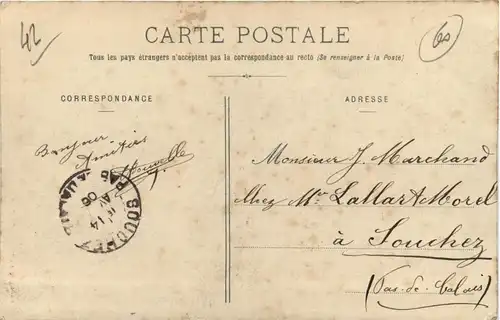 42
60
CARTE POSTALE
Tous les pays étrangers n'acceptent pas la correspondance au recto (Se renseigner à la Poste)
CORRESPONDANCE
ADRESSE
Bonjour
Amitiés
Monsieur J. Marchand
Chez Mr Lallart Morel
à Souchez
(Pas-de-Calais)
SOUCHEZ
14
06